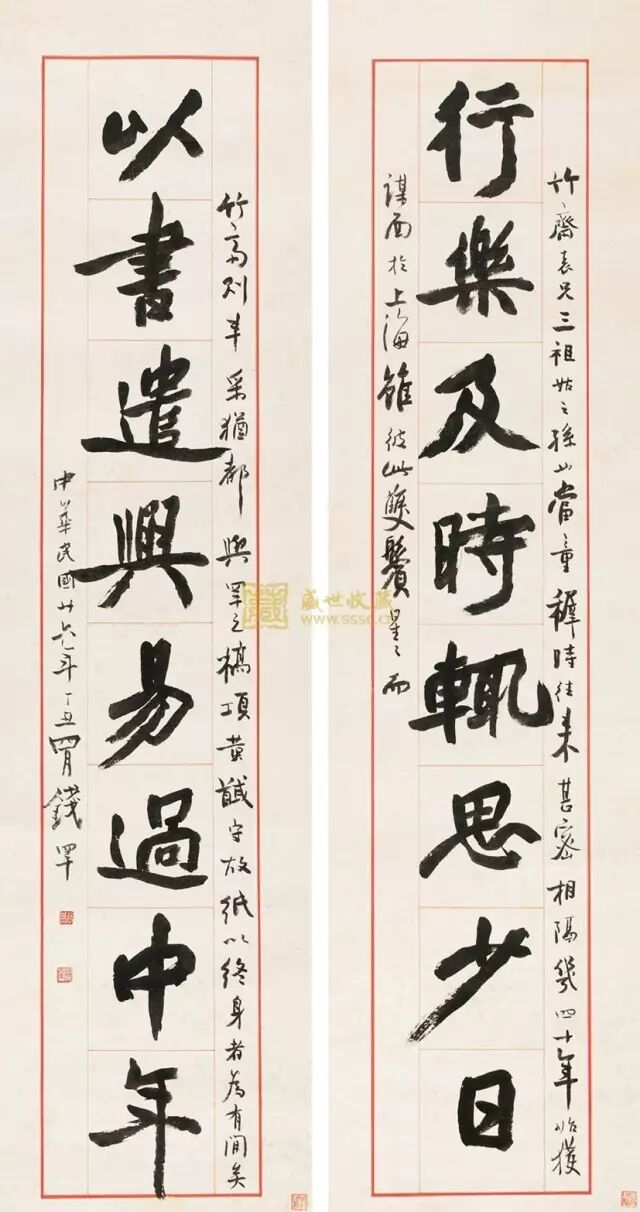 行樂及時輒思少日
以書遣興易過中年
竹齋表兄三祖姑之孫也當童穉時往來甚密相隔幾四十年始獲
謀面於上海雖彼此雙鬢星〻而
竹齋則丰采猶都與罕之槁項黄馘守故紙以終身者為有間矣
中華民國廿六年丁丑四月錢罕
盛世收藏
www.sssc.cn